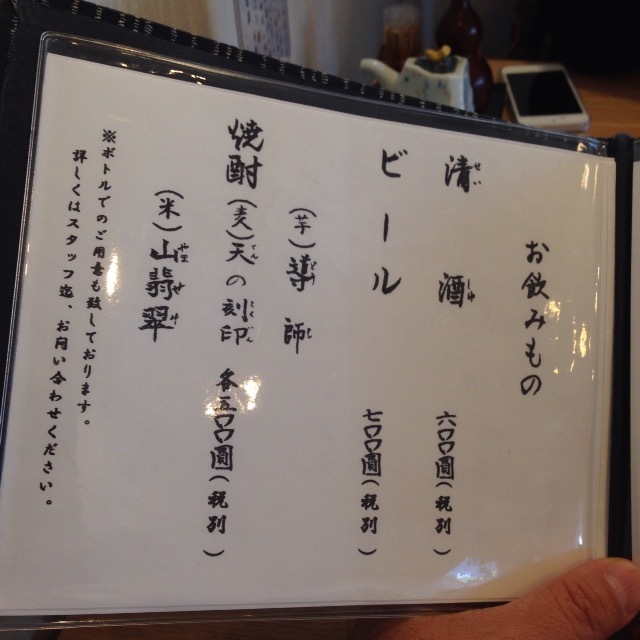 お飲みもの
清酒 六〇〇圓(税別)
せいしゅ
ビール 七〇〇圓(税別)
(芋)導師
どうし
焼酎(麦)天の刻印 各五〇〇圓(税別)
てん こくいん
(米)山翡翠
やませみ
※ボトルでのご用意も致しております。
詳しくはスタッフ迄、お問い合わせください。